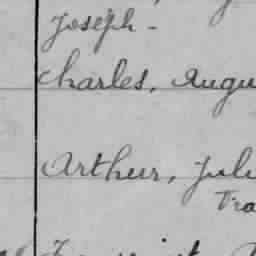 Joseph -
Charles, Augu
Arthur, Juli
Tra